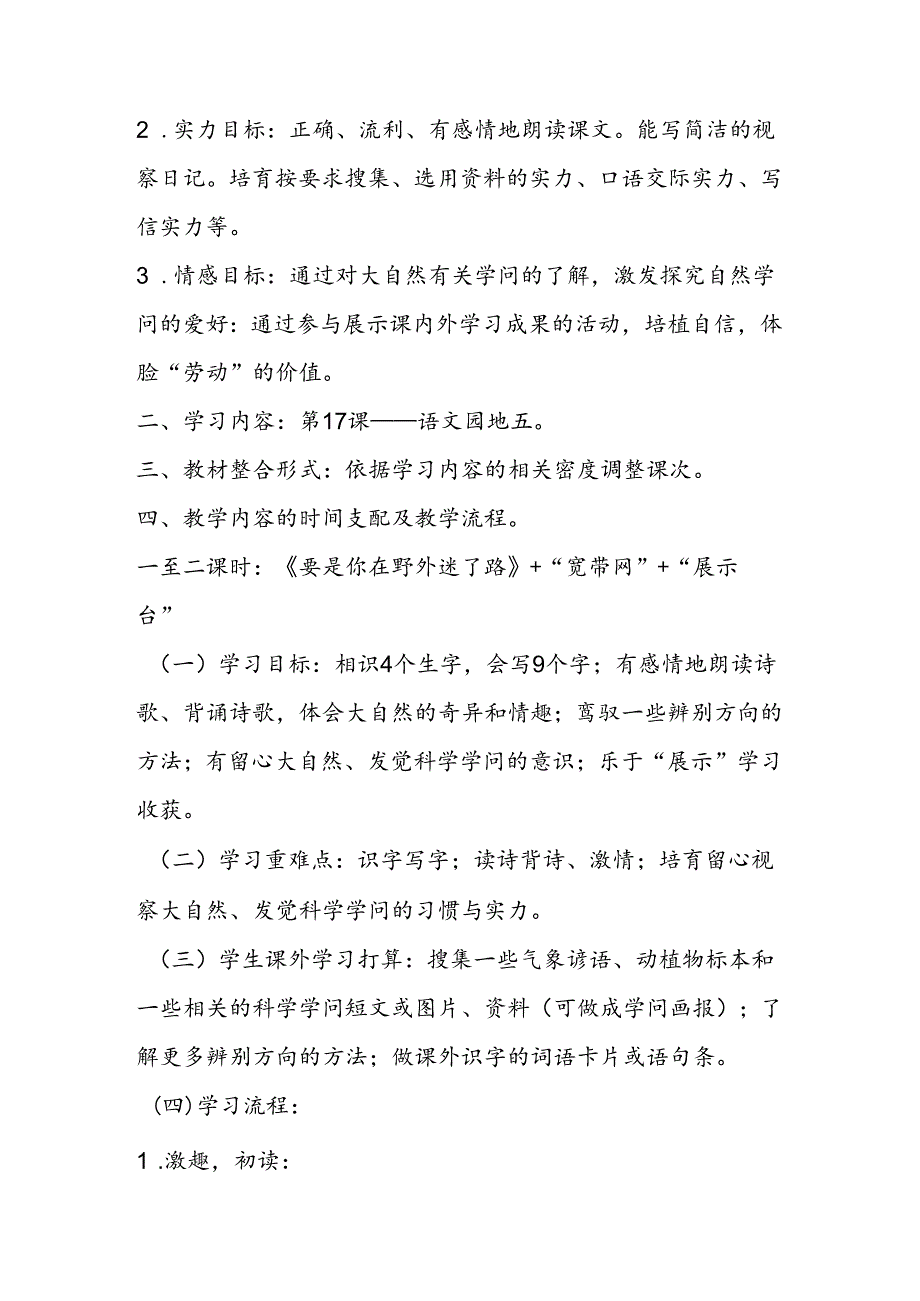 2 .实力目标：正确、流利、有感情地朗读课文。能写简洁的视
察日记。培育按要求搜集、选用资料的实力、口语交际实力、写
信实力等。
3 .情感目标：通过对大自然有关学问的了解，激发探究自然学
问的爱好：通过参与展示课内外学习成果的活动，培植自信，体
脸“劳动”的价值。
二、学习内容：第17课——语文园地五。
三、教材整合形式：依据学习内容的相关密度调整课次。
四、教学内容的时间支配及教学流程。
一至二课时：《要是你在野外迷了路》+“宽带网”+“展示
台”
（一）学习目标：相识4个生字，会写9个字；有感情地朗读诗
歌、背诵诗歌，体会大自然的奇异和情趣；鸾驭一些辨别方向的
方法；有留心大自然、发觉科学学问的意识；乐于“展示”学习
收获。
（二）学习重难点：识字写字；读诗背诗、激情；培育留心视
察大自然、发觉科学学问的习惯与实力。
（三）学生课外学习打算：搜集一些气象谚语、动植物标本和
一些相关的科学学问短文或图片、资料（可做成学问画报）；了
解更多辨别方向的方法；做课外识字的词语卡片或语句条。
(四)学习流程：
1 .激趣，初读：